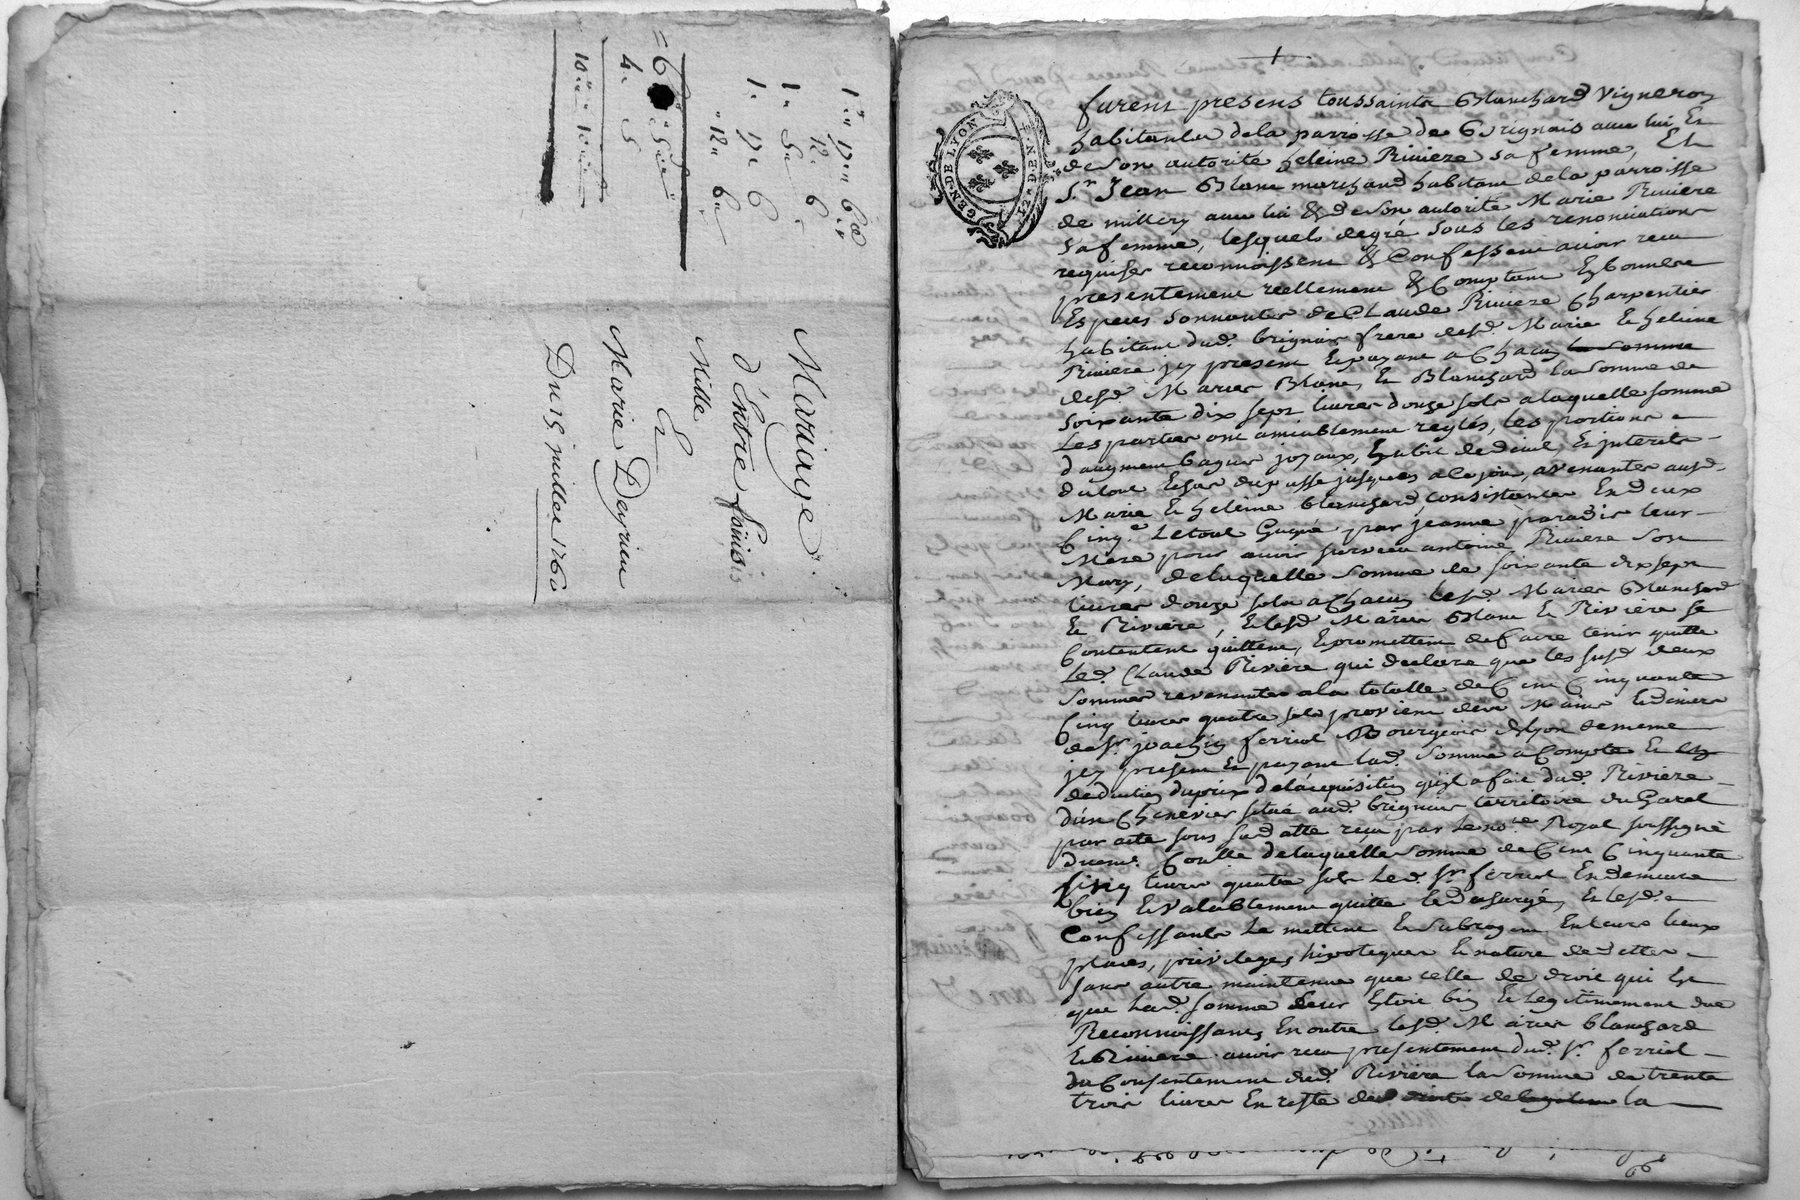 1ᵃ 17ᵃ 6ᵈ
12 6
1ᵃ 5ᵃ
1ᵃ 17ᵃ 6
12ᵃ 6ᵈ
4ᵃ 5
10ᵃ 10ᵃ
Mariage
d'Entre
Mille
Et
Marie Deyrieu
Du 15 juillet 1760
GEN·DE LYON
furent presens toussaints Blanchard Vigneron
habitants de la parroisse de Brignais avec lui Et
de Son autorité héleine Riviere sa femme, Et
Sr Jean Blanc marchand habitant de la parroisse
de millery avec lui & de Son autorité Marie Riviere
Sa femme, lesquels de gré sous les renonciations
requises reconnoissent & Confessent avoir recu
presentement reellement & Comptant En bonnes
Especes Sonnantes de Claude Riviere Charpentier
habitant dud. brignais frere desd. Marie Et helene
Riviere icy present Et payant a Chacun la somme
desd. Maries Blanc, Et Blanchard la Somme de
Soixante dix sept livres douze sols a laquelle somme
Les parties ont amiablement reglés, les portions
d'augment bagues joyaux, habit de deuil, Et interets
du tout Echus du passé jusques a Ce jour, avenantes ausd.
Marie Et héleine blanchard, Consistantes En deux
Cinqe. Le tout Gagné par jeanne paradis leur
Mere pour avoir survecu antoine Riviere Son
Mary, de laquelle Somme de soixante dix sept
livres douze sols a Chacun lesd. Maries Blanchard
Et Riviere, Et lesd. Maries Blanc Et Riviere se
Contentent quittent, Et promettent de faire tenir quitte
Led. Claude Riviere qui declare que les susd. deux
Sommes revenantes a la totalle de Cent Cinquante
Cinq livres quatre sols provient des Mains Et deniers
de Sr. joachin ferriol Bourgeois de lyon demême
icy present Et payant lad. Somme a Compte Et
deduction du prix de l'acquisition qu'il a fait dud. Riviere
d'un Chenevier situé aud. brignais territoire du Garel
par acte sous sa datte reçu par Le nore. Royal soussigné
de laquelle Somme de Cent Cinquante
Cinq livres quatre sols Led. Sr. ferriol En demeure
bien Et Valablement quitte Et dechargé, Et lesd.
Confessants Le mettent Et Subrogent En leurs lieux
places, privileges hipoteques Et nature de dettes
sans autre maintenue que celle de droit qui Est
que Lad. somme Leur Etoit bien Et legitimement due
Reconnoissants En outre lesd. Maries blanchard
Et Riviere avoir recu presentement dud. Sr. ferriol
du Consentement dud. Riviere la Somme de trente
trois livres En reste de la